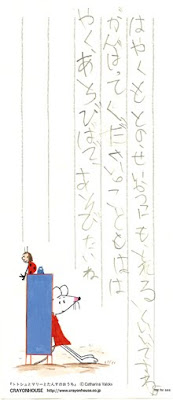 はやくもとのせいかつにもどれるといいですね
がんばってください。こどもはは
やく、あそびばで、あそびたいね
『トトシュとマリーとたんすのおうち』 © Catharina Valckx
CRAYONHOUSE http://www.crayonhouse.co.jp